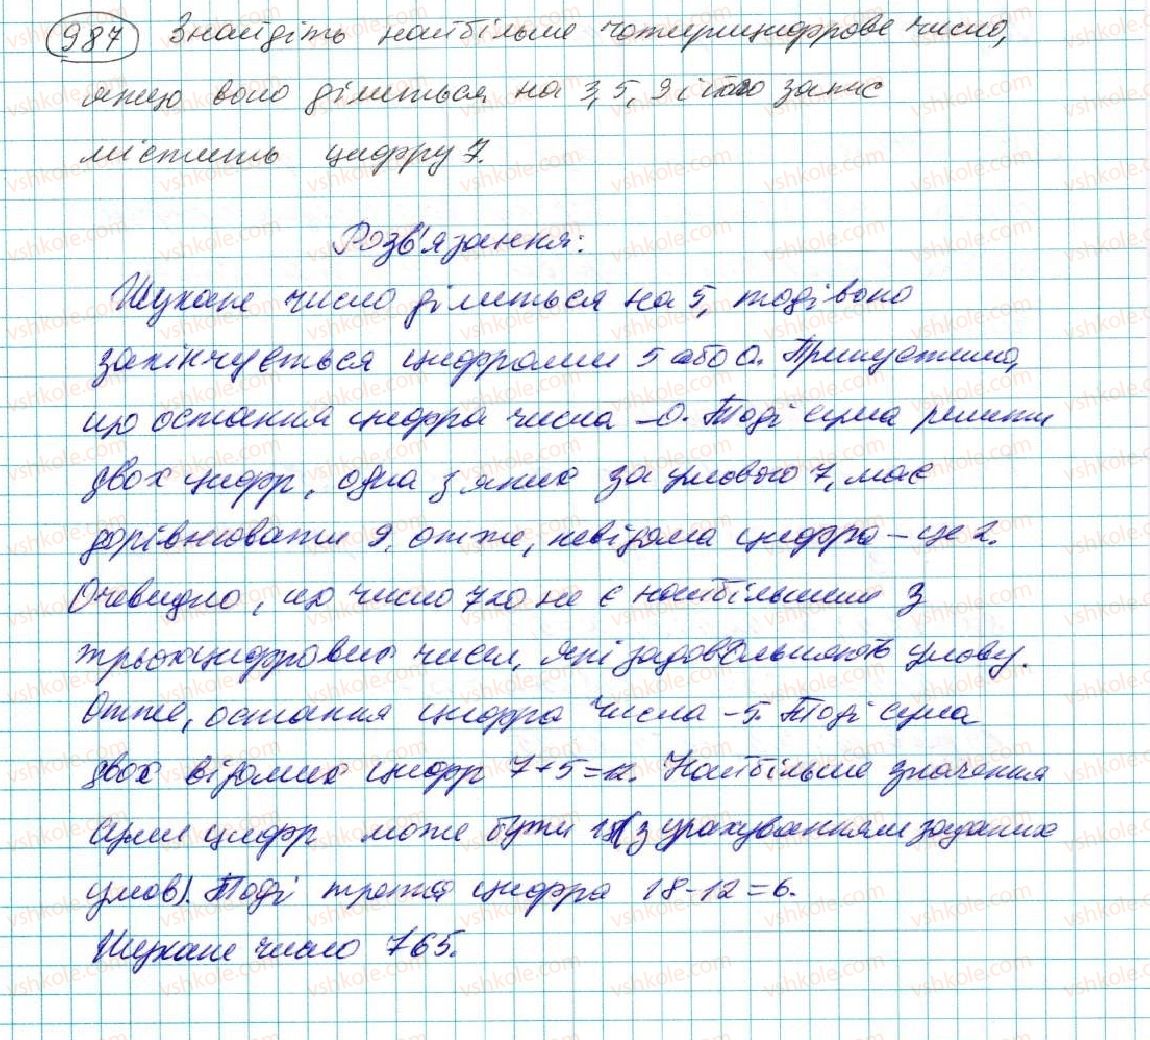 987 Знайдіть найбільше чотирицифрове число,
якщо воно ділиться на 3, 5, 9 і його запис
містить цифру 7.
Розв'язання:
Шукане число ділиться на 5, тоді воно
закінчується цифрами 5 або 0. Припустимо,
що остання цифра числа – 0. Тоді сума решти
двох цифр, одна з яких за умовою 7, має
дорівнювати 9, отже, невідома цифра – це 2.
Очевидно, що число 720 не є найбільшим з
трьохцифрових чисел, які задовольняють умову.
Отже, остання цифра числа – 5. Тоді сума
двох відомих цифр 7+5=12. Найбільше значення
суми цифр може бути 18 (з урахуванням заданих
умов). Тоді третя цифра 18-12=6.
Шукане число 765.